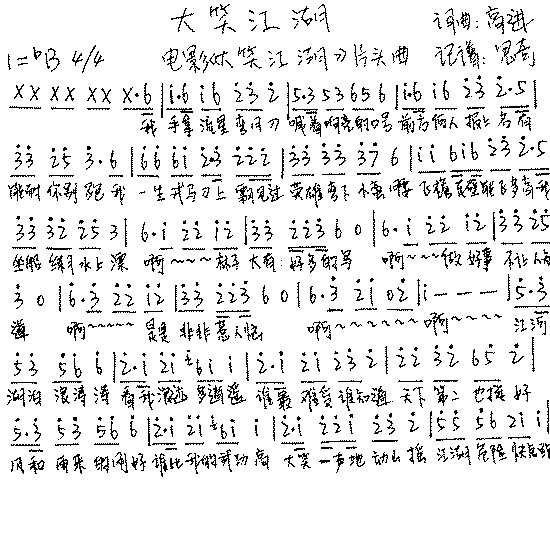 大笑江湖
词曲：高进
1=♭B 4/4 电影《大笑江湖》片头曲 记谱：思奇
X X X X X X X·6 | i·6 i 6 2 3 2 | 5·3 5 3 6 5 6 | i·6 i 6 2 3 2·5 |
我 手拿流星弯月刀 喊着响亮的口号 前方何人报上名有
3 3 2 5 3·6 | 6 6 6 i 2·3 2 2 2 | 3 3 3 3 3 7 6 | i i 6 i 6 2 3 2·5 |
能耐你别跑 我 一生戎马刀上 飘见过 英雄弯下小蛮腰 飞檐走壁能飞多高我
3 3 3 2 2 5 3 | 6·i 2 2 i 2 | 3 3 2 2 3 6 0 | 6·i 2 2 i 2 | 3 3 2 5
坐船练习水上漂 啊～～～～林子大有 好多的鸟 啊～～～～做好事 不让人知
3 0 | 6·3 2 2 i 2 | 3 3 2 2 3 6 0 | 6·3 2 i 0 2 | i - - - | 5·3
啊～～～～～是是非非惹人恼 啊～～～～～～啊～～～ 江河
5 3 5 6 6 | 2·i 2 i 6 i i | 2·i 2 i 2 3 2 | 2 2 3 2 6 5 2 |
湖泊 浪涛涛 看我浪迹多逍遥 谁最难受谁知道 天下第二也挺好
5·3 5 3 5 6 6 | 2·i 2 i 6 i i | 2·i 2 2 i 2 3 2 | 5 5 5 6 2 i i |
风和雨来的刚好 谁比我的武功高 大笑一声地动山摇 江湖危险快点